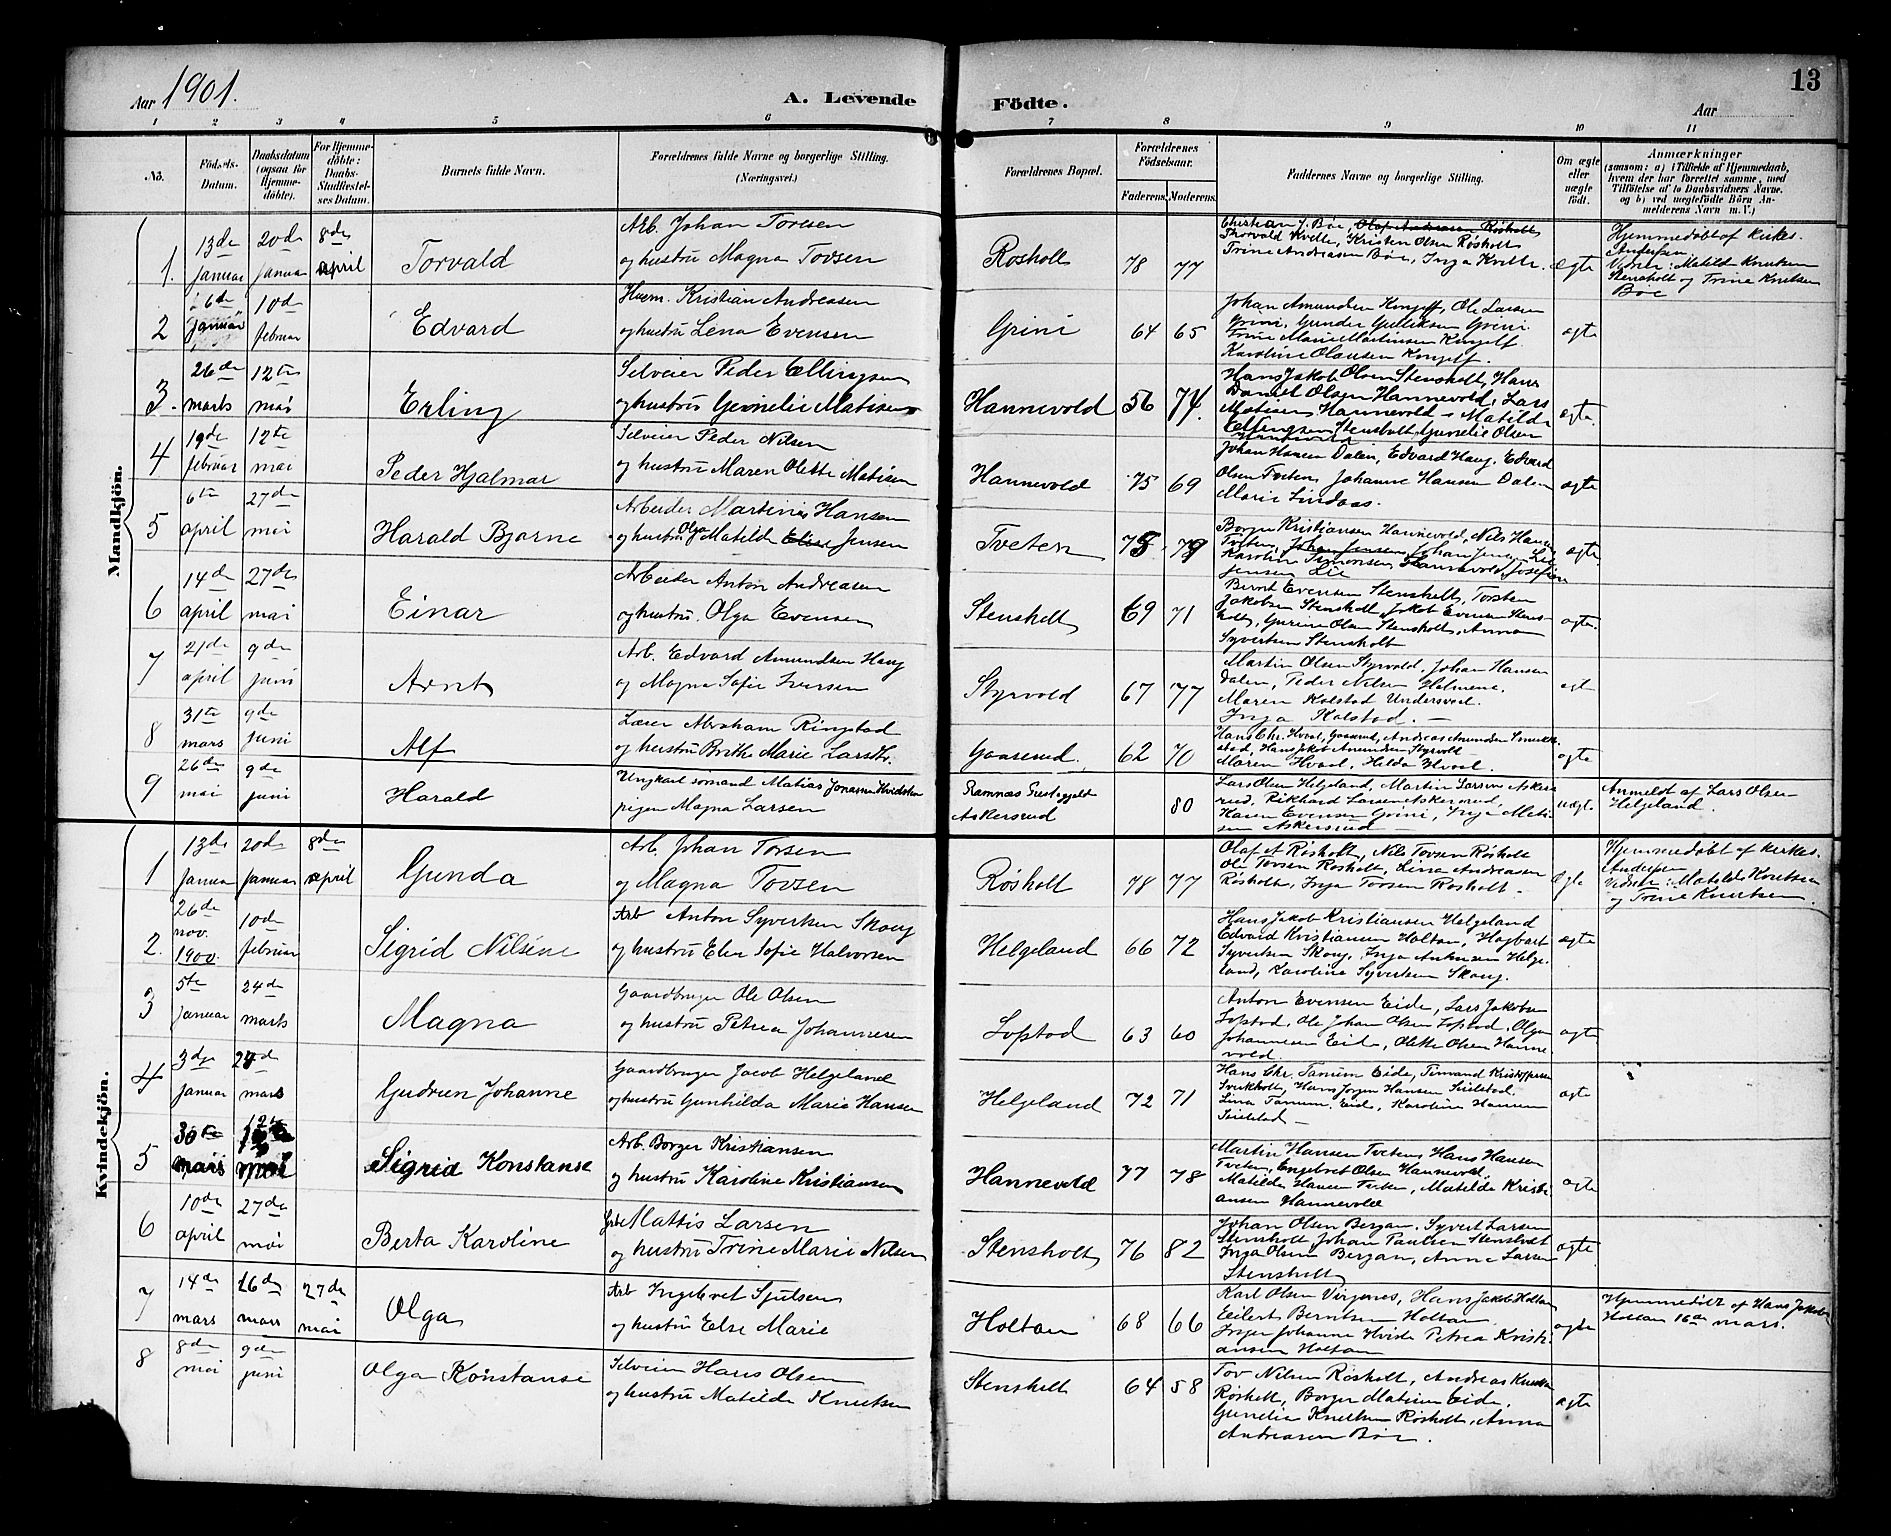 Aar 1901. A. Levende Födte. Aar 13
1 2 3 4 5 6 7 8 9 10 11
No. Födsels-Datum. Daabsdatum (ogsaa for Hjemmedöbte). For Hjemmedöbte: Daabs-Stadfæstelses Datum. Barnets fulde Navn. Forældrenes fulde Navne og borgerlige Stilling. (Næringsvei.) Forældrenes Bopæl. Forældrenes Födselsaar. Faderens. Moderens. Faddernes Navne og borgerlige Stilling. Om ægte eller uægte födt. Anmærkninger (saasom: a) i Tilfælde af Hjemmedaab, hvem der har forrettet samme, med Tilföielse af to Daabsvidners Navne, og b) ved uægtefödte Börn Anmelderens Navn m. V.)
Mandkjön.
1. 13de Januar 20de Januar 8de april Torvald Arb. Johan Torsen og hustru Magna Tovsen Rosholt 78 77 Christian J. Bøe, Olaf Andreasen Røsholt
Thorvald Kvelle, Kristen Olsen Røsholt
Trine Andreasen Bøe, Inga Kvelle. ægte Hjemmedøbt af kirkes. Andersen
Vidner: Matild Knutsen Stensholt og Trine Knutsen Bøe
2 6de Januar 10de februar Edvard Huem. Kristian Andreasen og hustru Lena Evensen Grini 64 65 Johan Amundsen Kongelf, Ole Larsen
Grini, Gunder Gulliksen Grini.
Trine Marie Martinsen Kongelf.
Karoline Olausen Kongelf. ægte
3. 26de marts 12te mai Erling Selveier Peder Ellingsen og hustru Gurnelie Matisen Hannevold 56 74. Hans Jakob Olsen Stensholt, Hans
Daniel Olsen Hannevold, Lars
Matisen Hannevold, Matilde
Ellingsen Stensholt, Gunelie Olsen
Hannevold ægte.
4 19de februar 12te mai Peder Hjalmar Selveier Peder Nilsen og hustru Maren Olette Matisen Hannevold 75 69 Johan Hansen Dalen, Edvard Haug, Edvard
Olsen Tveten, Johanne Hansen Dalen
Marie Lindaas. ægte
5 6te april 27de mai Harald Bjarne Arbeider Martinius Hansen og hustru Olga Matild Elise Jensen Tveten 78 79 Borger Kristiansen Hannevold, Nils Hansen
Tveten, Johan Jensen Johan Jensen Lie
Karoline Simonsen Hannevold, Josefine
Jensen Lie ægte
6 14de april 27de mai Einar Arbeider Anton Andreasen og hustru Olga Evensen Stensholt 69 71 Bernt Evensen Stensholt, Torsten
Jakobsen Stensholt, Jakob Evensen Stensholt, Gurine Olsen Stensholt, Anna
Syvertsen Stensholt ægte.
7 21de april 9de juni Arnt Arb. Edvard Amundsen Haug og Magna Sofie Iversen Styrvold 67 77 Martin Olsen Styrvold, Johan Hansen
Dalen, Peder Nilsen Holmene.
Maren Kolstad Undersvol.
Inga Kolstad. ægt
8 31te mars 9de juni Alf Lærer Abraham Ringstad og hustru Brithe Marie Larsdtr. Gaaserud. 62 70 Hans Chr. Hvaal, Gaaserud, Andreas Amundsen
Hans Jakob Amundsen Styrvold
Maren Hvaal, Hilda Hvaal. ægte
9 26de mai 9de juni Harald Ungkarl sømand Matias Jonassen pigen Magna Larsen Ramnæs Præstegjeld Askersrud 80 Lars Olsen Helgeland, Martin Larsen Askersrud, Rikhard Larsen Askersrud,
Karen Evensen Grini, Inga Matisen Askersrud uægte Anmeldt af Lars Olsen Helgeland.
Kvindekjön.
1 13de Januar 20de Januar 8de april Gunda Arb. Johan Torsen og Magna Tovsen Røsholt 78 77 Olaf A Røsholt, Nils Tovsen Røsholt
Ole Torsen Rosholt, Lina Andreasen
Røsholt, Inga Torsen Rosholt. ægte Hjemmedøbt af kirkes. Andersen
Vidner: Matilde Knutsen og Trine Knutsen.
2. 26de nov. 1900. 10de februar Sigrid Nilsine Arb Anton Syvertsen Skoug og hustru Else Sofie Halvorsen Helgeland 66 72 Hans Jakob Kristiansen Helgeland
Edvard Kristiansen Holtan, Hagbart
Syvertsen Skoug, Inga Helgeland, Karoline Syvertsen Skoug. ægte
3 5te januar 24de marts Magna Gaardbruger Ole Olsen og hustru Petrea Johannesen Sopstad 63 60 Anton Evensen Eide, Lars Jakobsen
Sopstad, Ole Johan Olsen Sopstad, Olga
Johannesen Eide, Olette Olsen Hannevold. ægte
4 3dje januar 24de mars Gudrun Johanne Gaardbruger Jacob Helgeland og hustru Gunhilda Marie Hansen Helgeland 72 71 Hans Chr. Tanum Eide, Timand Kristoffersen
Hans Jørgen Hansen Seielstad.
Lina Tanum Eide, Karoline Hansen
Seielstad ægte
5 30te mars 12te mai Sigrid Konstanse Arb. Borger Kristiansen og hustru Karoline Kristiansen Hannevold 77 78 Martin Hansen Tveten, Hans Hansen
Tveten, Engebret Olsen Hannevold,
Matilde Hansen Tveten, Matilde Kristiansen Hannevold ægte
6 10de april 27de mai Berta Karoline Arb Mattis Larsen og hustru Trine Marie Nilsen Stensholt 76 82 Johan Olsen Bergan, Syvert Larsen
Stensholt, Johan Paulsen Stensholt
Inga Olsen Bergan, Anne Larsen
Stensholt ægte
7 14de mars 26de mars 27de mai Olga Arb Ingebret Sjulsen og hustru Else Marie Holtan 68 66 Karl Olsen Virgenes, Hans Jakob Holtan
Eilert Berntsen Holtan.
Inger Johanne Hvide Petrea Kristiansen Holtan ægte Hjemmedøbt af Hans Jakob Holtan 16de mars.
8 8de mai 9de juni Olga Konstanse Selveier Hans Olsen og hustru Matilde Knutsen Stensholt 64 58 Tov Nilsen Røsholt, Andreas Knutsen
Røsholt, Borger Matisen Eide,
Gunelia Knutsen Røsholt, Anna
Andreasen Bøe. ægte